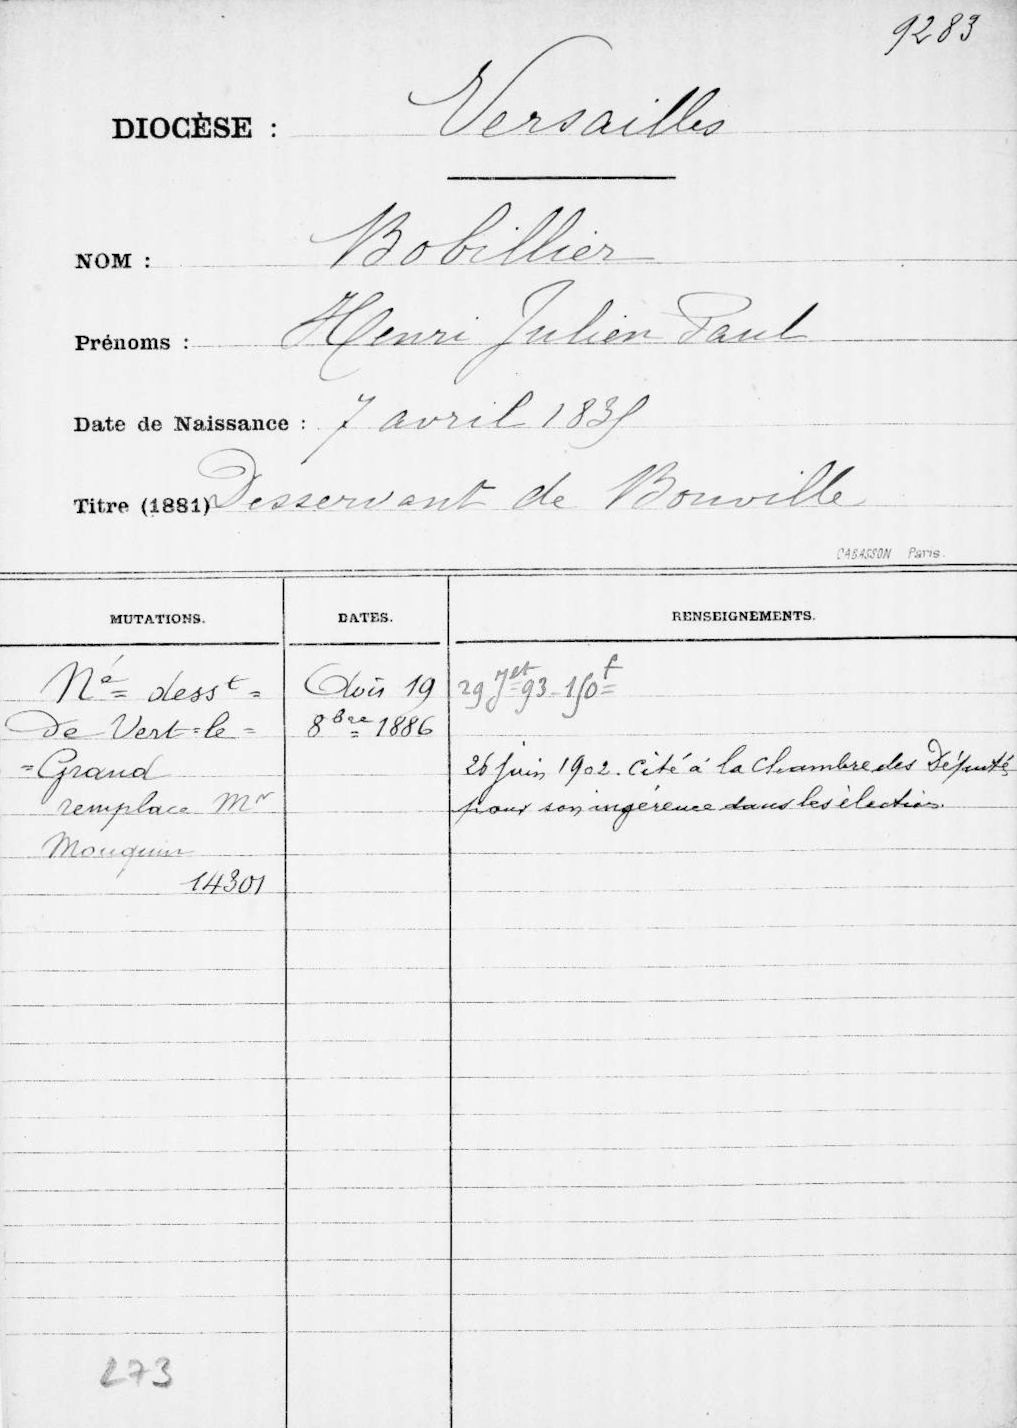 9283
DIOCÈSE : Versailles
NOM : Bobillier
Prénoms : Henri Julien Paul
Date de Naissance : 7 avril 1835
Titre (1881) Desservant de Bouville
CABASSON Paris.
MUTATIONS. DATES. RENSEIGNEMENTS.
Né desst = Avis 19 29 Jet 93 - 150f
De Vert-le= 8bre 1886
=Grand 26 juin 1902. Cité à la Chambre des Députés
remplace Mr pour son ingérence dans les élections.
Mouquin
14301
273